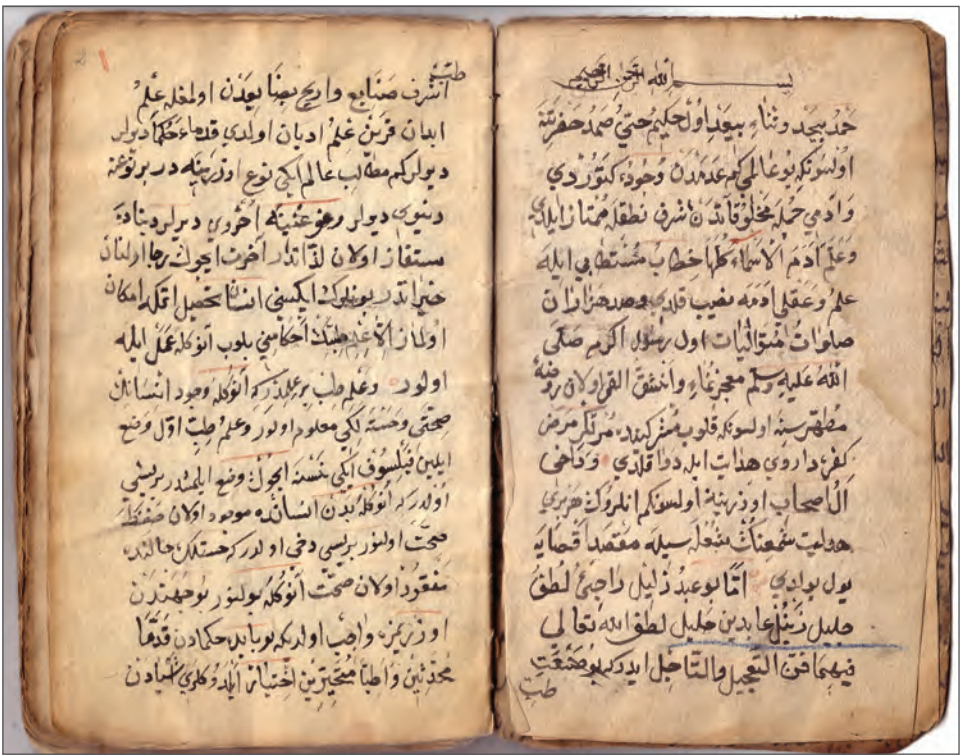 بسم الله الرحمن الرحيم
حمد بیحد و ثناء بیعد اول حکیم حیّ صمد حضرتنه
اولسونکه بو عالمی کتم عدمدن وجوده کتوردی
و آدمی جمله مخلوقاتدن اشرف نطقله ممتاز ایلدی
وعلّم آدم الاسماء کلها خطاب مستطابی ایله
علم و عقلی آدمه نصیب قلدی و صد هزاران
صلوات متوالیات اول رسول اکرم صلی
الله علیه وسلم معجزنماء وانشق القمر اولان روضهٔ
مطهرسنه اولسونکه قلوب مشرکینده مرتکز مرض
کفره داروی هدایت ایله دوا قلدی و داخی
آل اصحاب اوزرینه اولسونکم انلروک هر بری
هدایت شمعنک شعله سیله مقتصد اقصایه
یول بولدی امّا بو عبد ذلیل راجئ لطف
جلیل زین العابدین خلیل لطف الله تعالی
فیهما فی التعجیل والتاجیل ایدر که بو صنعت
طب
طب
اشرف صنایع و اربح بضایعدن اولمغله علم
ابدان قرین علم ادیان اولدی قدماء حکما دیرلر
دیرلرکم مطالب عالم ایکی نوع اوزرینه در بر نوعنه
دنیوی دیرلر و بر نوعنه اخروی دیرلر دنیاده
مستفاد اولان لذّاتدر آخرت ایچون رجا اولنان
خیراتدر بونلروک ایکسنی انسان تحصیل اتمکه امکان
اولماز الا علم طبّک احکامنی بلوب انوکله عمل ایله
اولور و علم طب بر علمدرکه انوکله وجود انسانک
صحتی و خسته لکی معلوم اولور و علم طب اوّل وضع
ایلین فیلسوف ایکی نسنه ایچون وضع ایلمشدر بریسی
اولدر که انوکله بدن انسانده موجود اولان حفظ
صحّت اولنور بریسی دخی اولدر که خستلک حالنده
مفقود اولان صحت انوکله بولنور بو جهتدن
اوزریمزه واجب اولدیکه بو بابده حکمادن قدما
محدثین و اطبّاء متحیّرین اختیار ایلدوکلری اشیادن